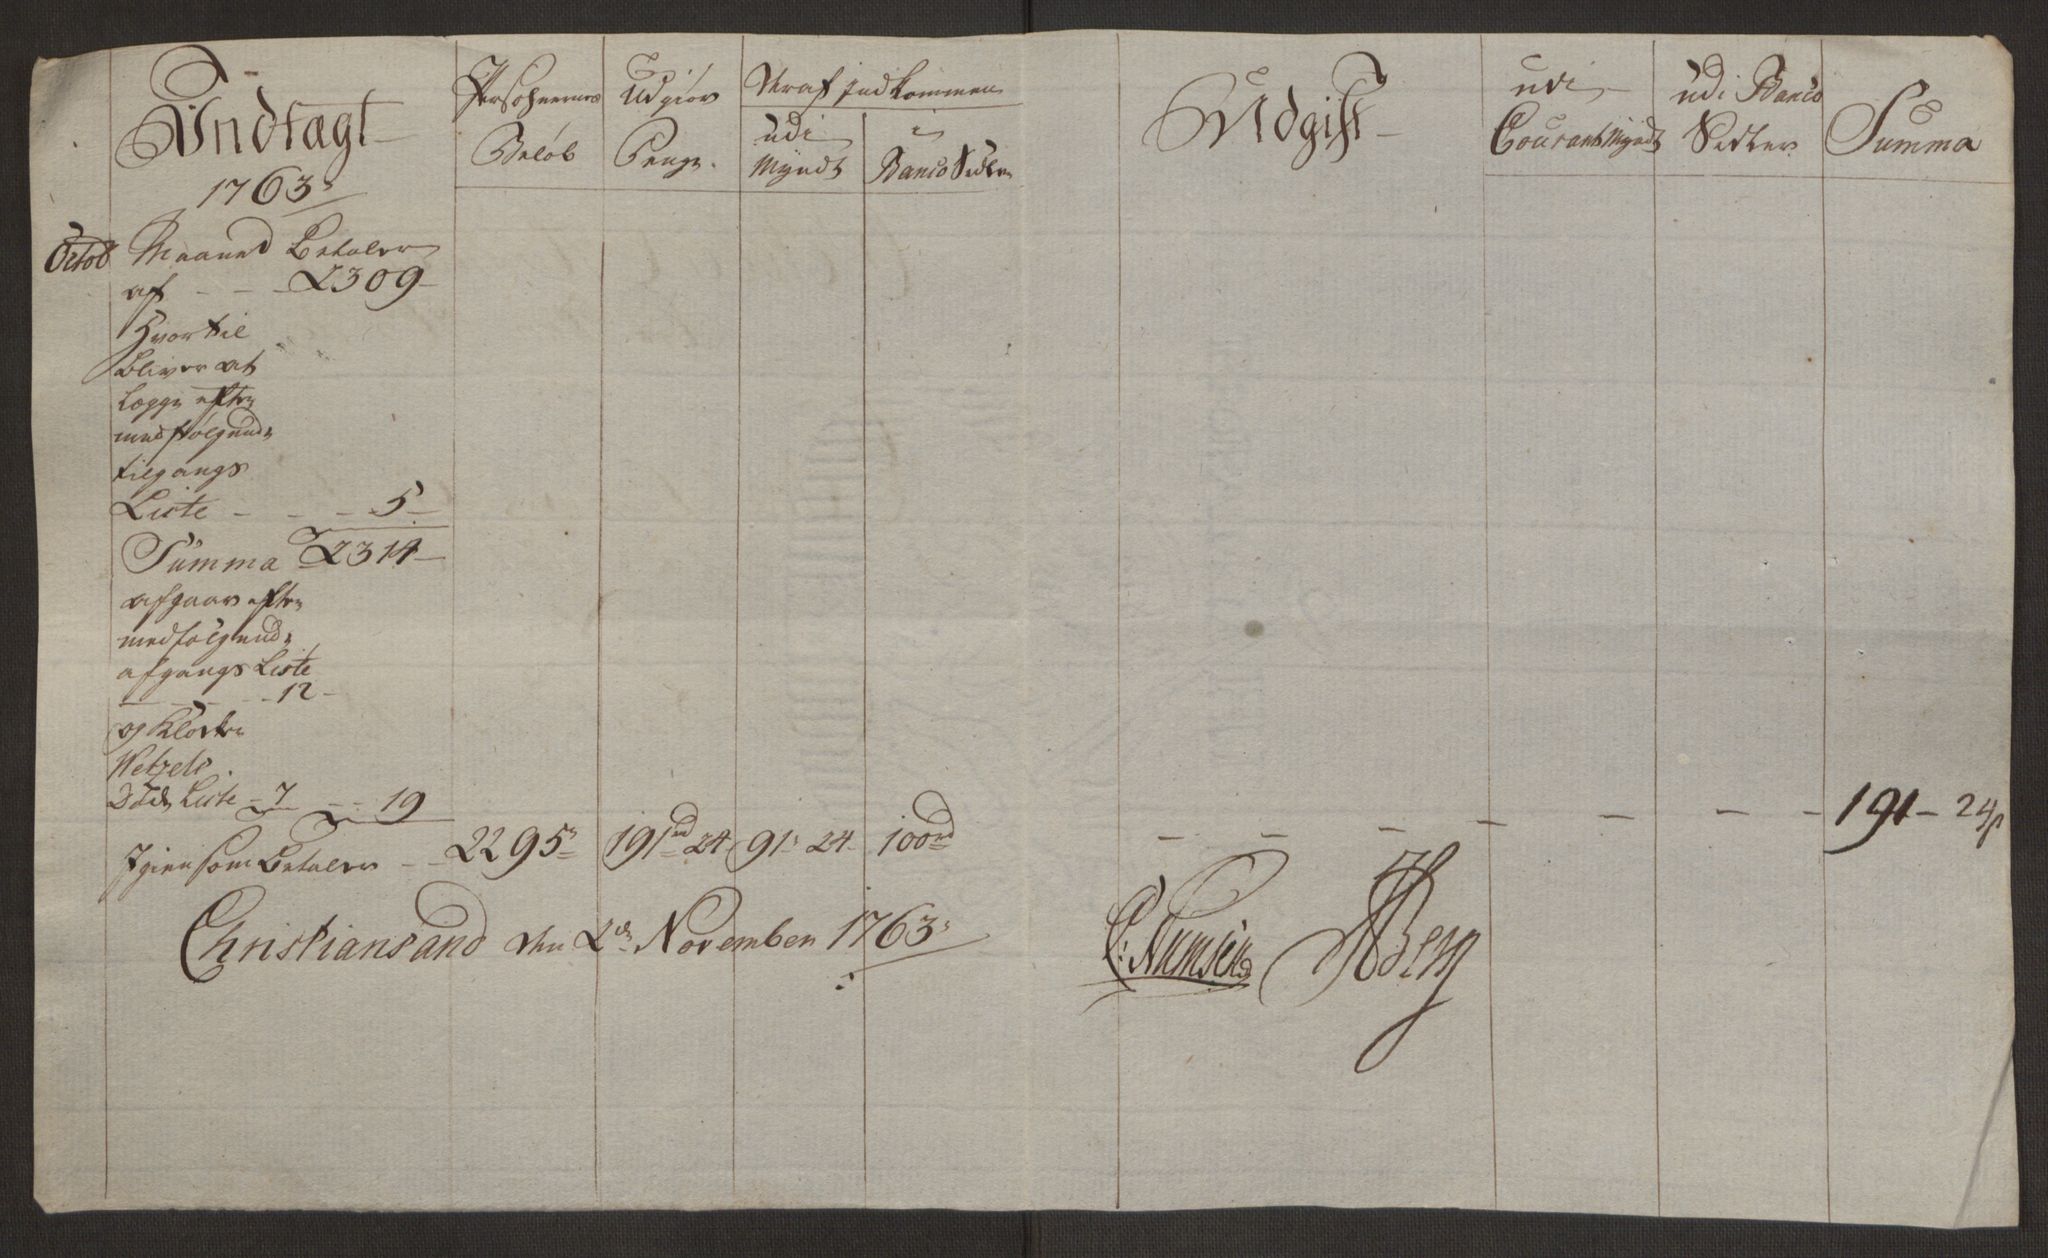 Indtægt
1763
Persohnernes
Beløb
Udgiør
Penge.
Hvraf indkommen
udi
Myndt
i
Banco Sedler
Udgift
udi
Courant Myndt
udi Banco
Sedler
Summa
Octob Maaned Betaler
af - - - 2309
Hvortil
bliver at
legge efter
medfølgende
tilgangs
Liste - - - 5
Summa 2314
afgaar efter
medfølgende
afgangs Liste
- - - 12
og Klocker
Wetzels
Døde Liste - 7 - - 19
Igien som Betaler - - 2295 191 rd 24 91 : 24 100 rd - - - - - - - 191 - 24 s
Christiansand den 2de November 1763
Berg